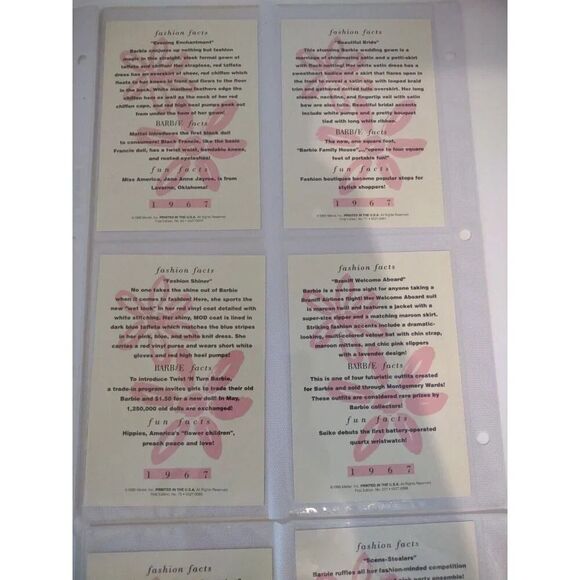 fashion facts
"Evening Enchantment"
Barbie conjures up nothing but fashion
magic in this straight, sleek formal gown of
taffeta and chiffon! Her strapless, red taffeta
dress has an overskirt of sheer, red chiffon which
floats to her knees in front and flows to the floor
in the back. White maribou feathers edge the
chiffon hem as well as the neck of her red
chiffon cape, and red high heel pumps peek out
from under the hem of her gown!
BARBIE facts
Mattel introduces the first black doll
to consumers! Black Francie, like the basic
Francie doll, has a twist waist, bendable knees,
and rooted eyelashes!
fun facts
Miss America, Jane Anne Jayroe, is from
Laverne, Oklahoma!
1967
fashion facts
"Beautiful Bride"
This stunning Barbie wedding gown is a
marriage of shimmering satin and a petti-skirt
with flock dotting! Her white satin dress has a
sweetheart neckline and a skirt that flares open in
the front to reveal a satin slip with looped braid
trim and gathered dotted tulle overskirt. Her long
sleeves, neckline, and fingertip veil with satin
bow are also tulle. Beautiful bridal accents
include white pumps and a pretty bouquet
tied with long white ribbon.
BARBIE facts
The new, one square foot,
"Barbie Family House",..."opens to four square
feet of portable fun!"
fun facts
Fashion boutiques become popular stops for
stylish shoppers!
1967
fashion facts
"Fashion Shiner"
No one takes the shine out of Barbie
when it comes to fashion! Here, she sports the
new "wet look" in her red vinyl coat detailed with
white stitching. Her shiny, MOD coat is lined in
dark blue taffeta which matches the blue stripes
in her pink, blue, and white knit dress. She
carries a red vinyl purse and wears short white
gloves and red high heel pumps!
BARBIE facts
To introduce Twist 'N Turn Barbie,
a trade-in program invites girls to trade their old
Barbie and $1.50 for a new doll! In May,
1,250,000 old dolls are exchanged!
fun facts
Hippies, America's "flower children",
preach peace and love!
1967
fashion facts
"Braniff Welcome Aboard"
Barbie is a welcome sight for anyone taking a
Braniff Airlines flight! Her Welcome Aboard suit
is maroon twill and features a jacket with a
super-size zipper and a matching maroon skirt.
Striking fashion accents include a dramatic-
looking, multi-colored velour hat with chin strap,
maroon mittens, and chic pink slippers
with a lavender design!
BARBIE facts
This is one of four futuristic outfits created
for Barbie and sold through Montgomery Wards!
These outfits are considered rare prizes by
Barbie collectors!
fun facts
Seiko debuts the first battery-operated
quartz wristwatch!
1967
fashion facts
fashion facts
"Scene-Stealers"
Barbie ruffles all her fashion-minded competition